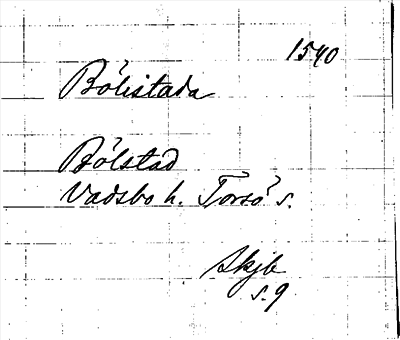 1540
Bölistada
Bölstad
Vadsbo h. Torsö s.
Skjb
s. 9